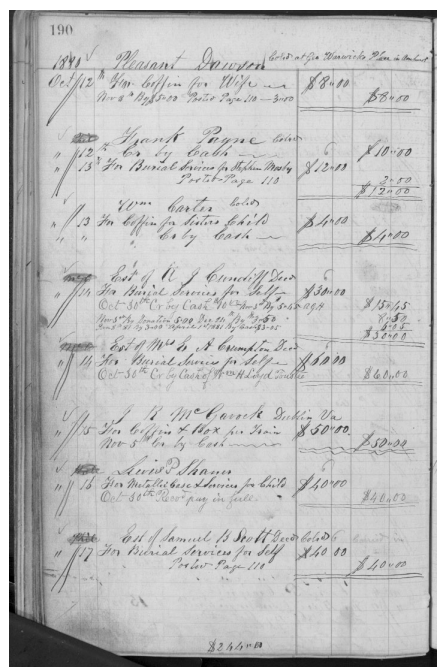 190
Pleasant Dawson Cold at Geo Warwicks Place in Amherst
Oct 12th For Coffin for Wife $8.00
Nov 3rd By $5.00 Posted Page 110 3.00 $8.00
Frank Payne Cold
" 12th Cr by Cash $10.00
" 15 For Burial Services for Stephen Mosby $12.00
Posted Page 110 2.00
$12.00
Wm Carter Cold
" 13 For Coffin for Sisters Child $4.00
" " Cr by Cash $4.00
Est of N J Cundiff Decd
" 14 For Burial Services for Self $30.00
Oct 30th Cr by Cash $15.45
$30.00
Est of Mrs E A Crumpton Decd
" 14 For Burial Services for Self $60.00
Oct 30th Cr by Cash of Wm H Loyd $60.00
Dublin Va
" 15 For Coffin & Box per Train $50.00
Nov 5th Cr by Cash $50.00
P Shaner
" 16 For Metallic Case & Services for Child $40.00
Oct 30th Recd pay in full $40.00
Est of Samuel B Scott Decd Cold
" 17 For Burial Services for Self $40.00
Posted Page 110 $40.00
$244.00